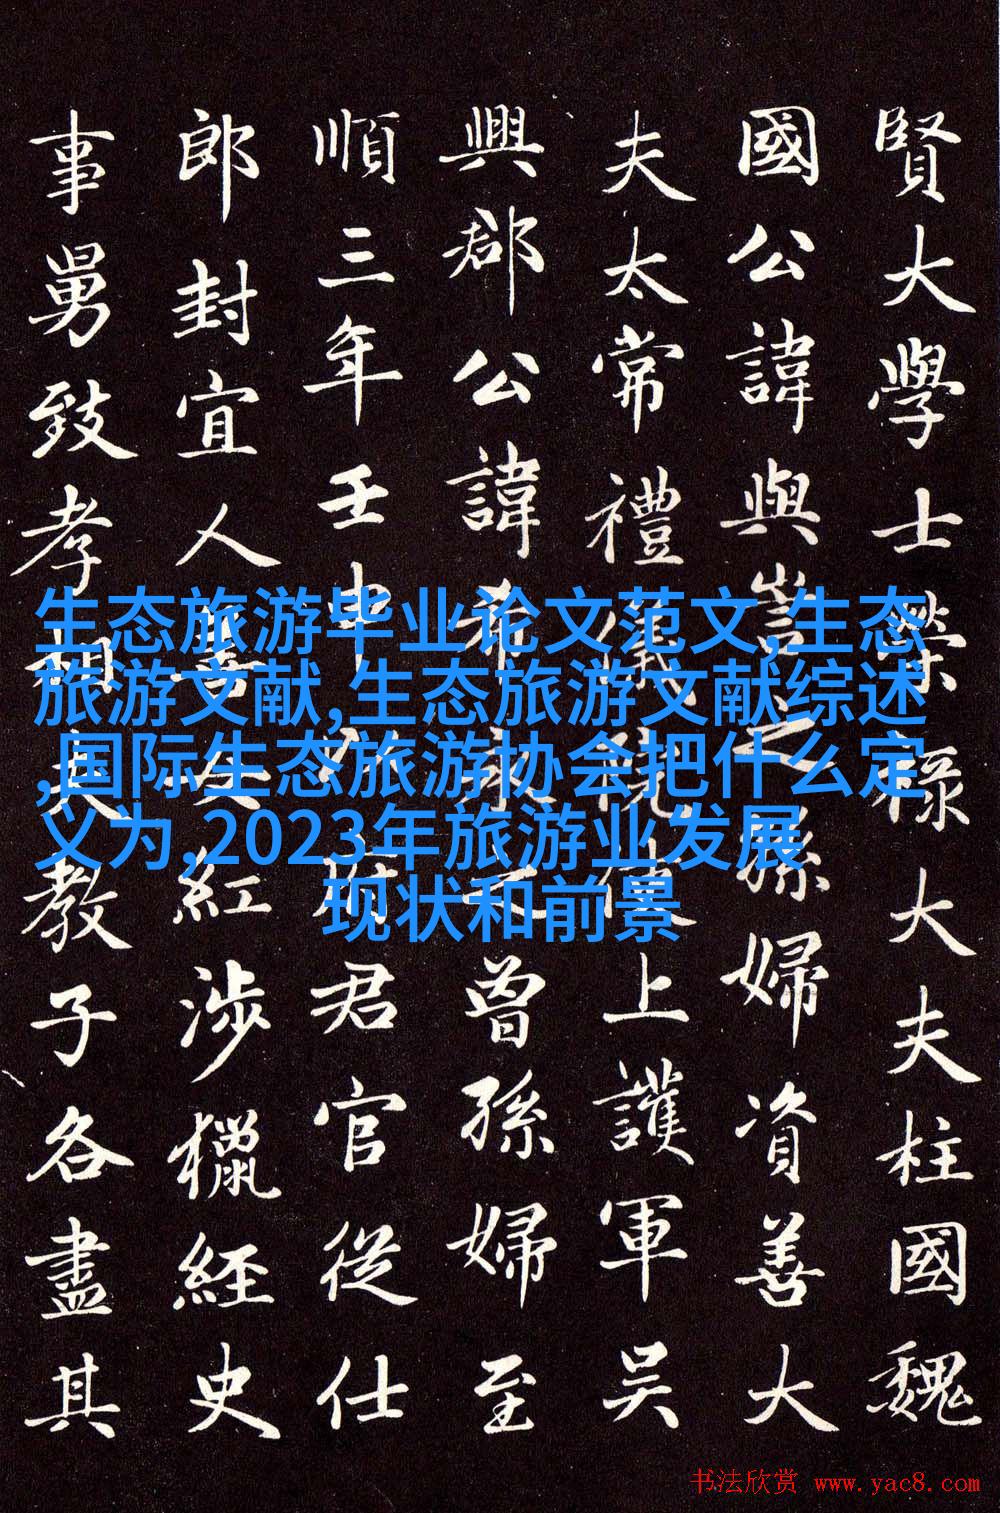 賢大學士榮祿大夫柱國魏
國公諱與訔之孫婦資善大
夫太常禮儀院使上護軍吳
興郡公諱希永之曾孫婦至
順三年壬申以府君官從仕
郎封宜人善女紅涉獵經史
事舅致孝相夫教子各盡其
生态旅游毕业论文范文,生态
旅游文献,生态旅游文献综述
,国际生态旅游协会把什么定
义为,2023年旅游业发展
现状和前景
书法欣赏 www.yac8.com